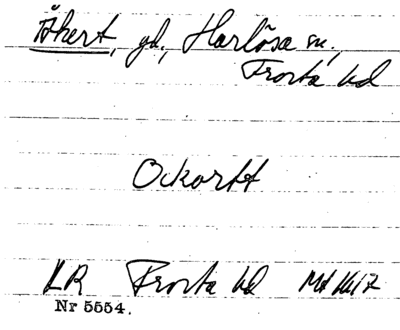 Åkert, gd., Harlösa sn.,
Frosta hd
Ockartt
LR Frosta hd
Nr 5554.